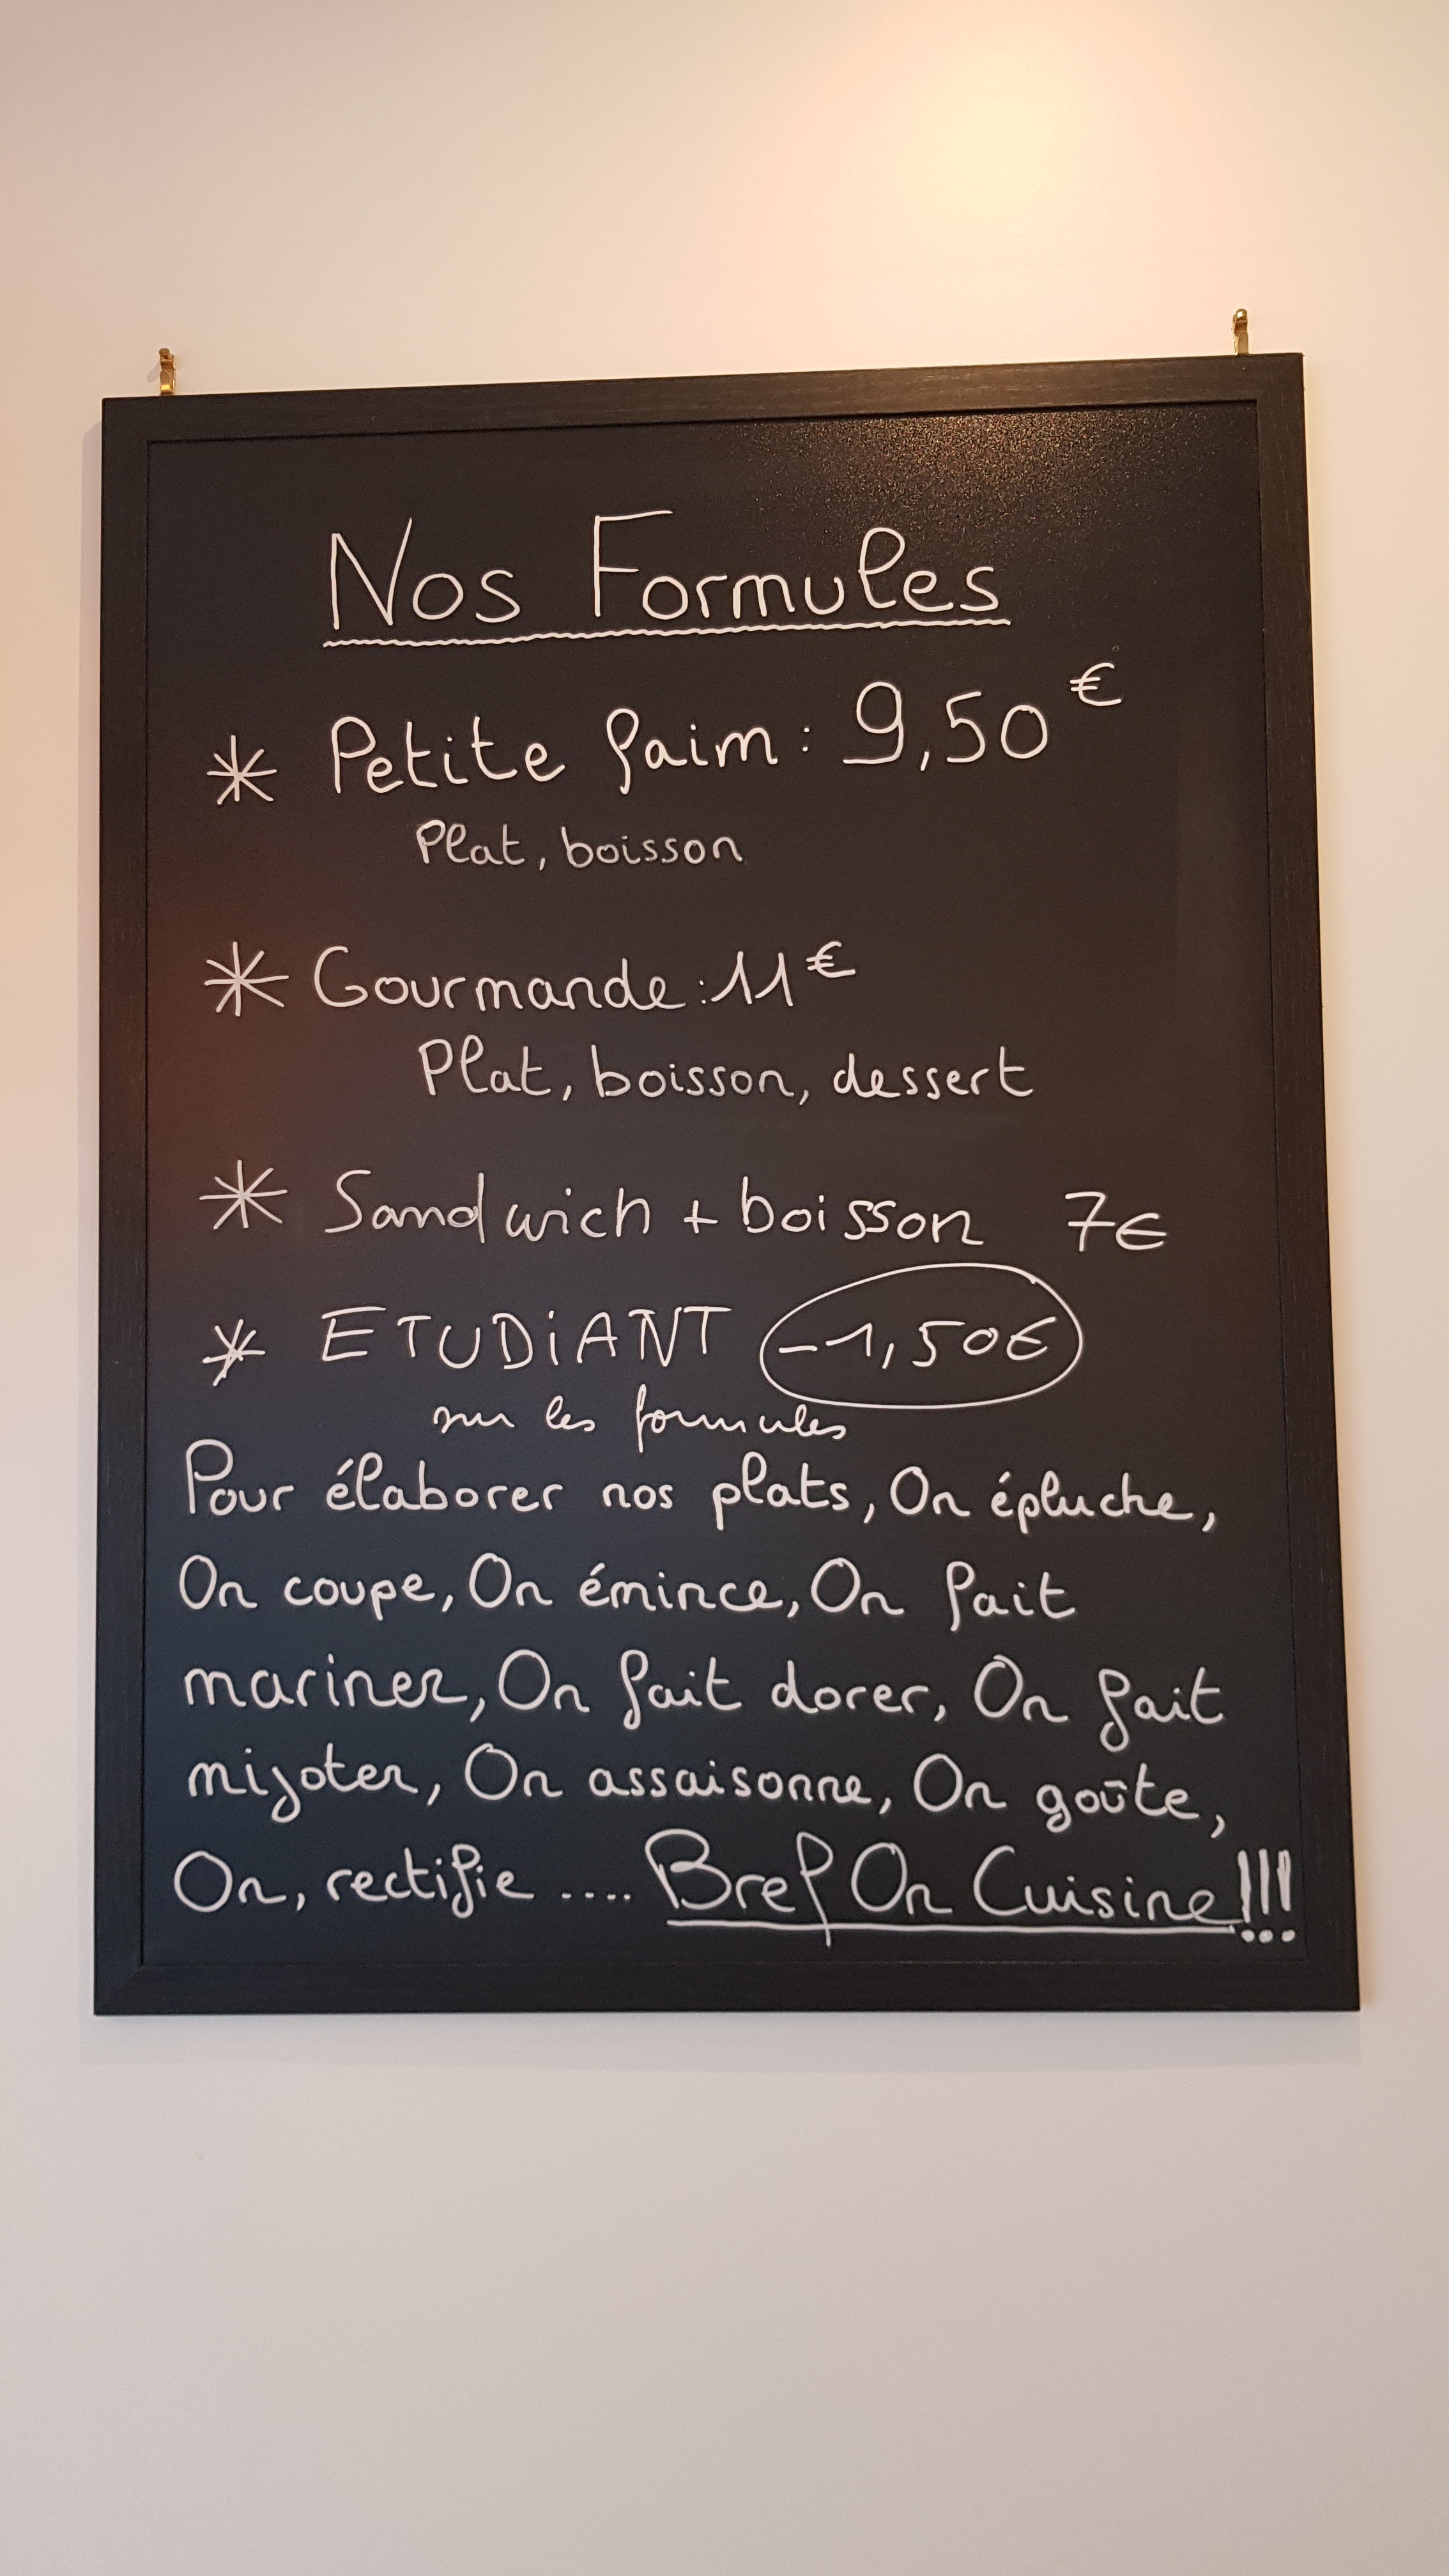 Nos Formules
* Petite faim : 9,50 €
Plat, boisson
* Gourmande : 11 €
Plat, boisson, dessert
* Sandwich + boisson 7€
* ETUDiANT -1,50€
sur les formules
Pour élaborer nos plats, On épluche,
On coupe, On émince, On fait
mariner, On fait dorer, On fait
mijoter, On assaisonne, On goûte,
On, rectifie .... Bref On Cuisine !!!